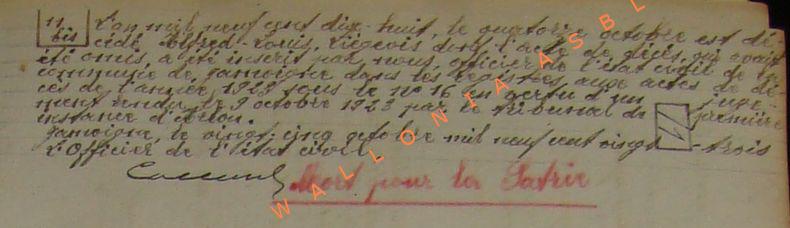 11 bis
L'an mil neuf cent dix-huit, le quatorze octobre est dé-
cédé Alfred-Louis, Liégeois dont l'acte de décès, qui avait
été omis, a été inscrit par nous, officier de l'état civil de la
commune de Jamoigne dans les registres aux actes de dé-
cès de l'année 1923 sous le no 16 en vertu d'un juge-
ment rendu le 9 octobre 1923 par le tribunal de première
instance d'Arlon.
Jamoigne, le vingt-cinq octobre mil neuf cent vingt-trois
L'Officier de l'état civil
Mort pour la Patrie
WALLONIA ASBL